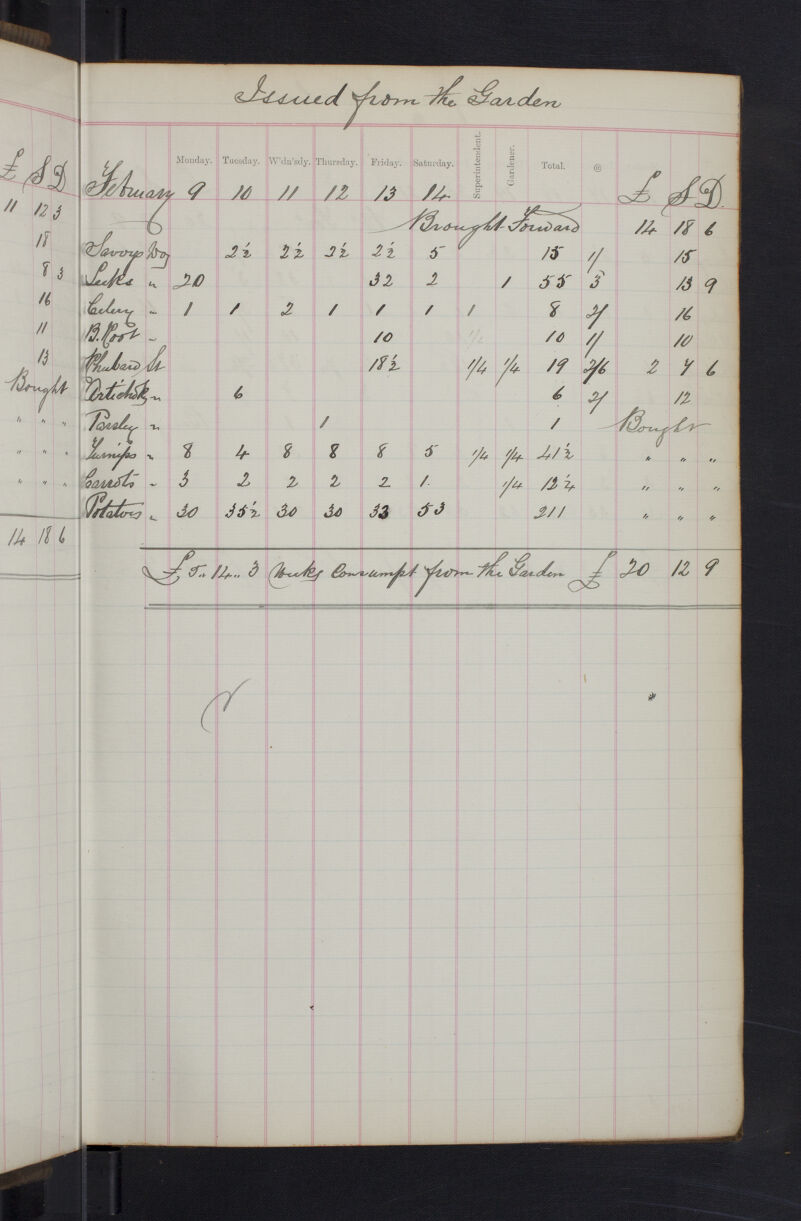 Issued from the Garden
Monday. Tuesday. W'dn'sdy. Thursday. Friday. Saturday. Superintendent. Gardener. Total. @
February 9 10 11 12 13 14 £ S D
Brought Forward 14 18 6
Savoys Doz 2½ 2½ 2½ 2½ 5 15 1/ 15
Leeks " 20 32 2 1 55 3 13 9
Celery " 1 1 2 1 1 1 1 8 2/ 16
B. Root " 10 10 1/ 10
Rhubarb St 18½ ¼ ¼ 19 2/6 2 7 6
Artichoks " 6 6 2/ 12
Parsley " 1 1 Bought
Turnips " 8 4 8 8 8 5 ¼ ¼ 41½ " " "
Carrots " 3 2 2 2 2 1 ¼ 12¼ " " "
Potatoes " 30 35½ 30 30 33 53 211 " " "
£5" 14" 3 Weeks Consumpt from the Garden £ 20 12 9
£ S D
11 12 3
18
8 3
16
11
13
Bought
" " "
" " "
" " "
14 18 6